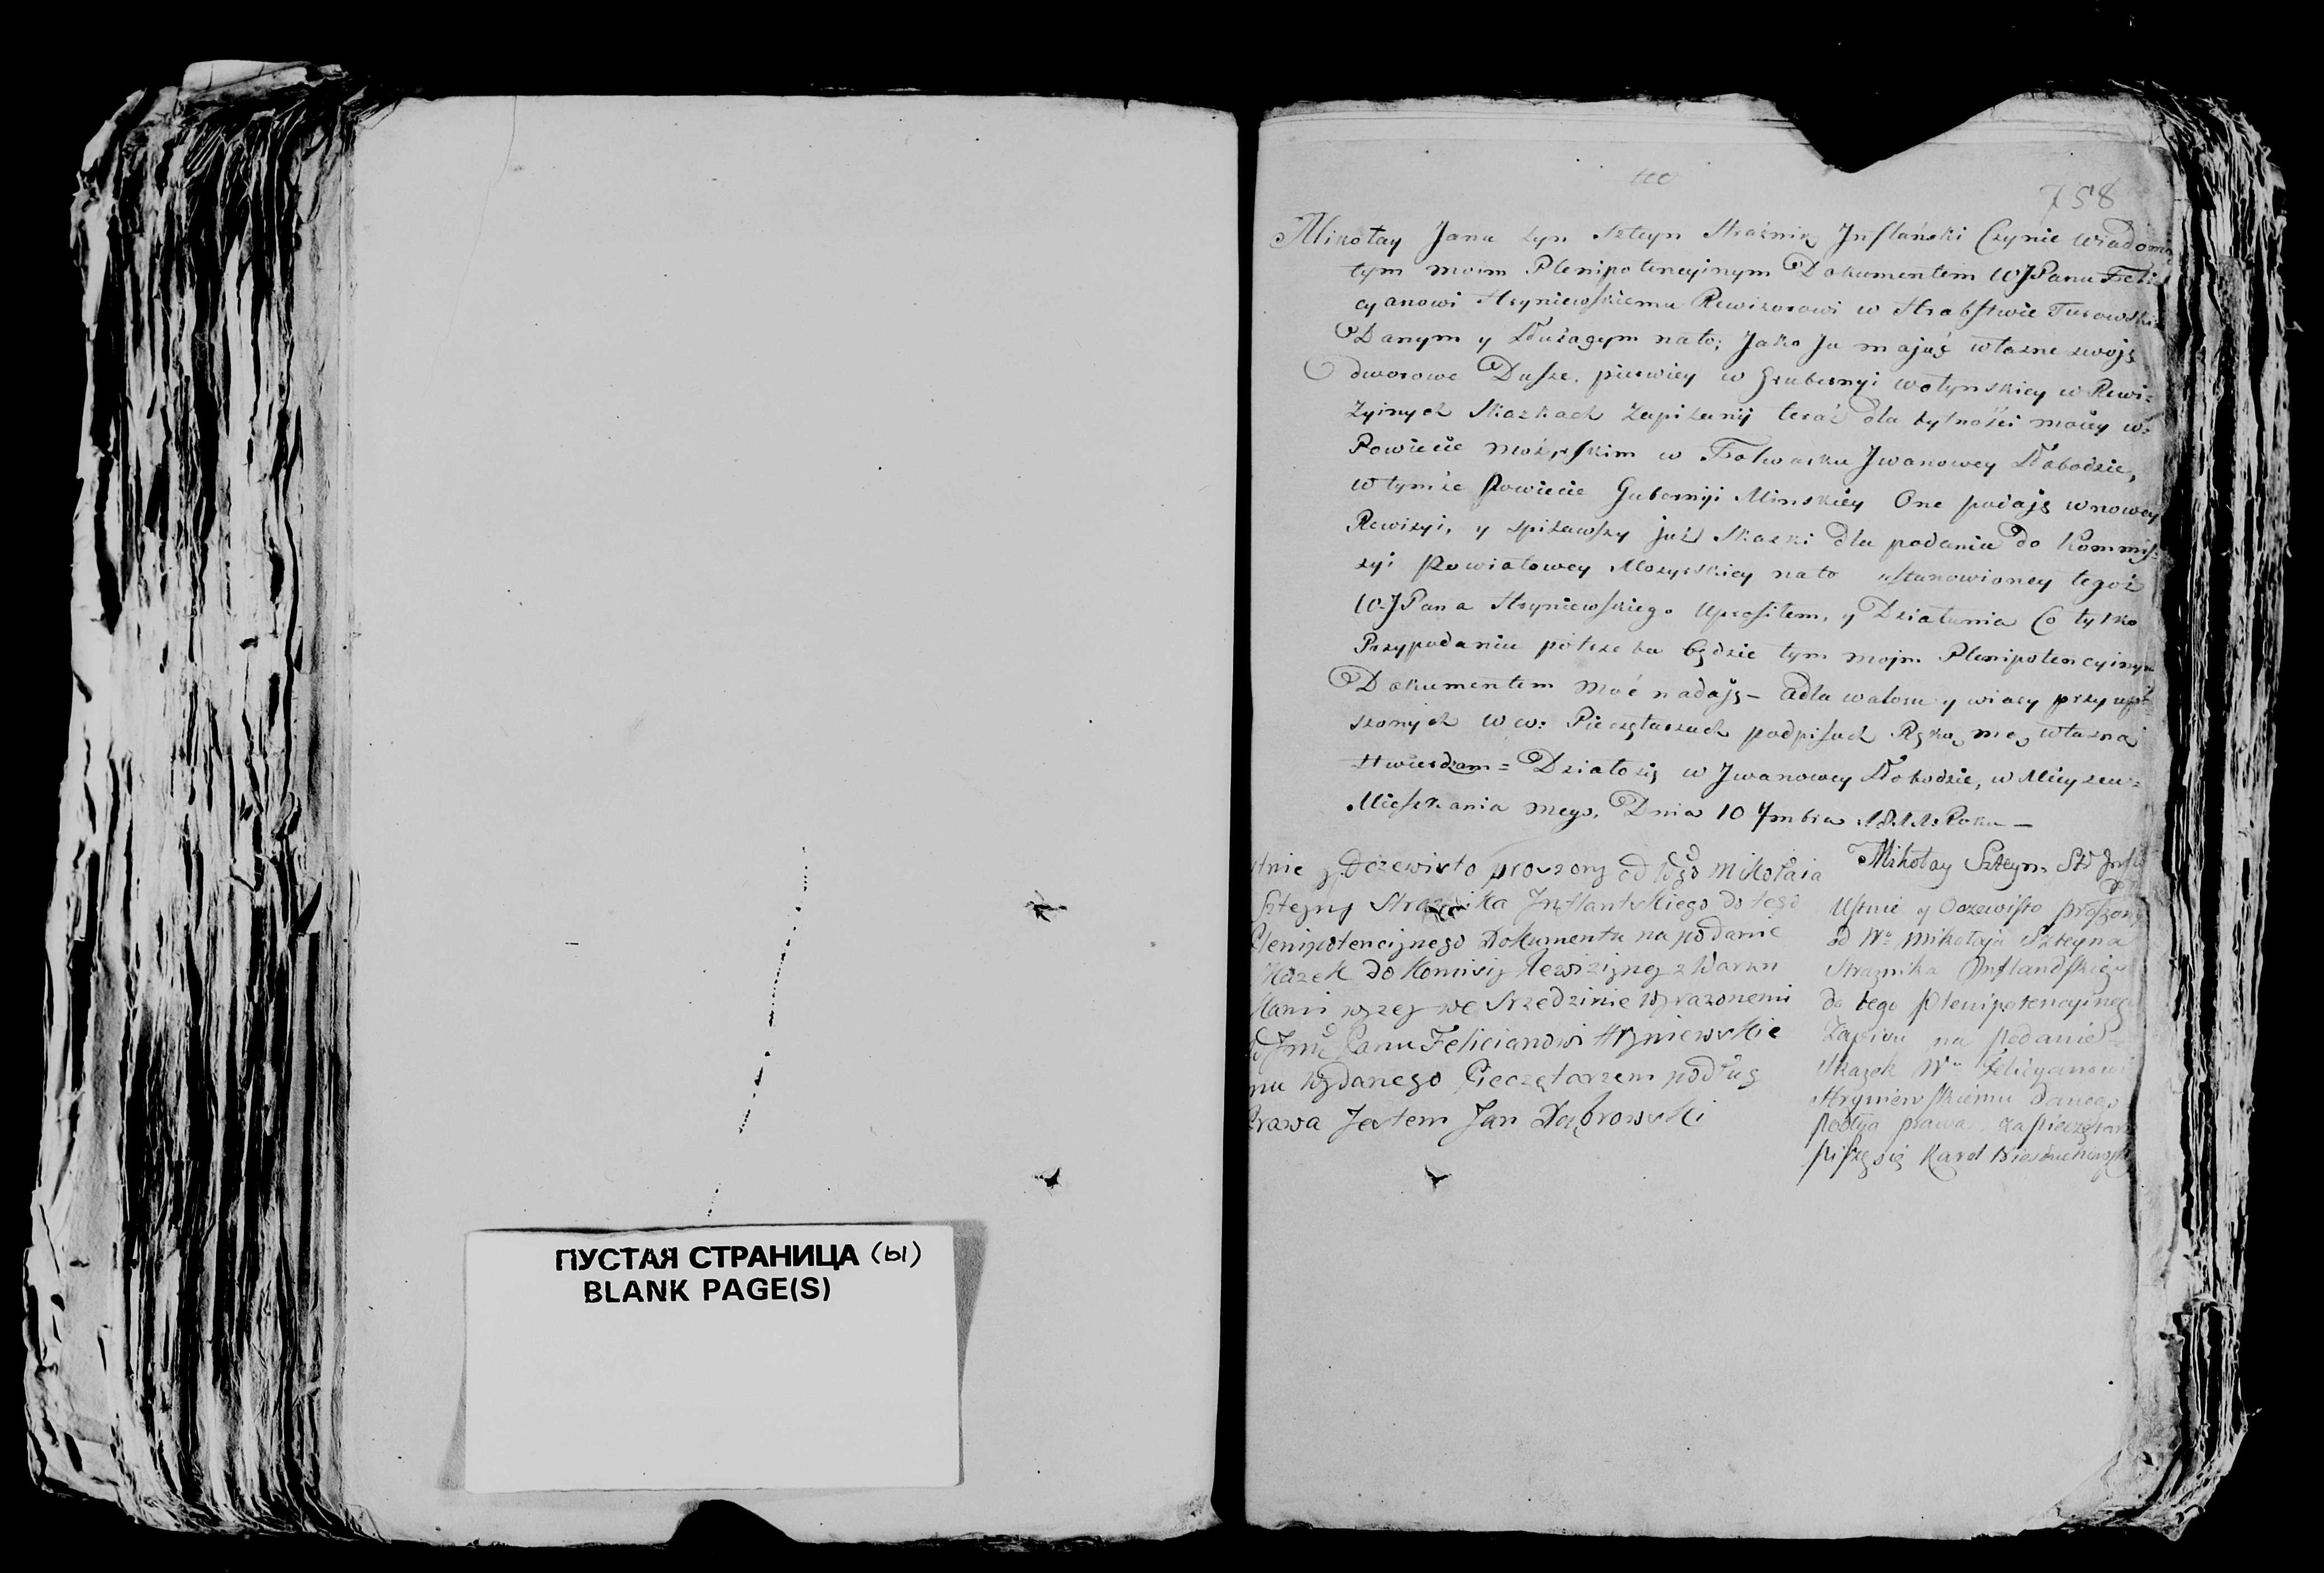 ПУСТАЯ СТРАНИЦА (ы)
BLANK PAGE(S)
758
Mikołay Jana syn Szteyn Strażnik Jnflański Czynie wiadomo
tym moim Plenipotencyinym Dokumentem WJPanu Feli
cyanowi Hryniewskiemu Rewizorowi w Hrabstwie Turowski
Danym y Służącym nato; Jako Ja mając własne swoję
dworowe Dusze, pierwiey w Gubernyi wołynskiey w Rewi=
zyinych Skazkach Zapisanij teraź dla bytności moiey w:
Powiecie Mozyrskim w Folwarku Jwanowey Słobodzie,
w tymże Powiecie Guberniji Minskiey One podaję w nowey
Rewizyi, y spisawszy już Skazki dla podania do Kommis=
syi Powiatowey Mozyrskiey na to ustanowioney tegoż
WJPana Hryniewskiego Uprosiłem, y Działania Co tylko
Przypodaniu potrzeba będzie tym mojm Plenipotencyinym
Dokumentem Moć nadaję – adla waloru y wiary przy upro=
szonych W w: Pieczętarzach podpisach Ręką mą własną
stwierdzam = Działosię w Jwanowey Słobodzie, w Mieyscu=
Mieszkania mego, Dnia 10 7mbra 1811 Roku —
Mikołay Szteyn St: Jnfl
stnie y Oczewisto proszony od Wgo Mikołaia
Szteyny Strażnika Jnflantskiego do tego
Plenipotencijnego Dokumentu na podanie
Skazek do Komisij Rewizijney z Warun
kami wyzey we Srzedzinie wyrazonemi
Jmć Panu Felicianowi Hryniewskie
mu wydanego Pieczętarzem podług
Prawa Jestem Jan Dąbrowski
Ustnie y Oczewisto proszony
od Wo Mikołaja Szteyna
Straznika Jnflandskiego
do tego Plenipotencyinego
Zapisu na podanie
Skazek Wu Felicyanowi
Hryniewskiemu danego
podług prawa za pieczętarz
piszę się Karol